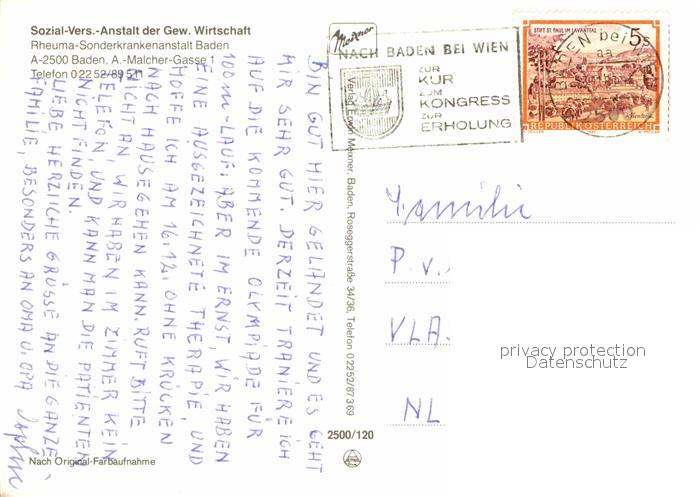 Sozial-Vers.-Anstalt der Gew. Wirtschaft
Rheuma-Sonderkrankenanstalt Baden
A-2500 Baden, A.-Malcher-Gasse 1
Telefon 0 22 52/89 5 11
BIN GUT HIER GELANDET UND ES GEHT
MIR SEHR GUT. DERZEIT TRANIERE ICH
AUF DIE KOMMENDE OLYMPIADE FÜR
100 m-LAUF; ABER IM ERNST WIR HABEN
EINE AUSGEZEICHNETE THERAPIE UND
HOFFE ICH AM 16.12. OHNE KRÜCKEN
NACH HAUSE GEHEN KANN. RUFT BITTE
NICHT AN, WIR HABEN IM ZIMMER KEIN
TELEFON, UND KANN MAN DIE PATIENTEN
NICHT FINDEN.
LIEBE HERZLICHE GRÜSSE AN DIE GANZE
FAMILIE, BESONDERS AN OMA U. OPA
Nach Original-Farbaufnahme
Verlag Edith Meixner, Baden, Roseggerstraße 34/36, Telefon 0 22 52/87 3 69
2500/120
Meixner
NACH BADEN BEI WIEN
ZUR
KUR
ZUM
KONGRESS
ZUR
ERHOLUNG
STIFT ST. PAUL IM LAVANTTAL
5s
REPUBLIK ÖSTERREICH
Familie
P. v.
VLA.
NL
privacy protection
Datenschutz